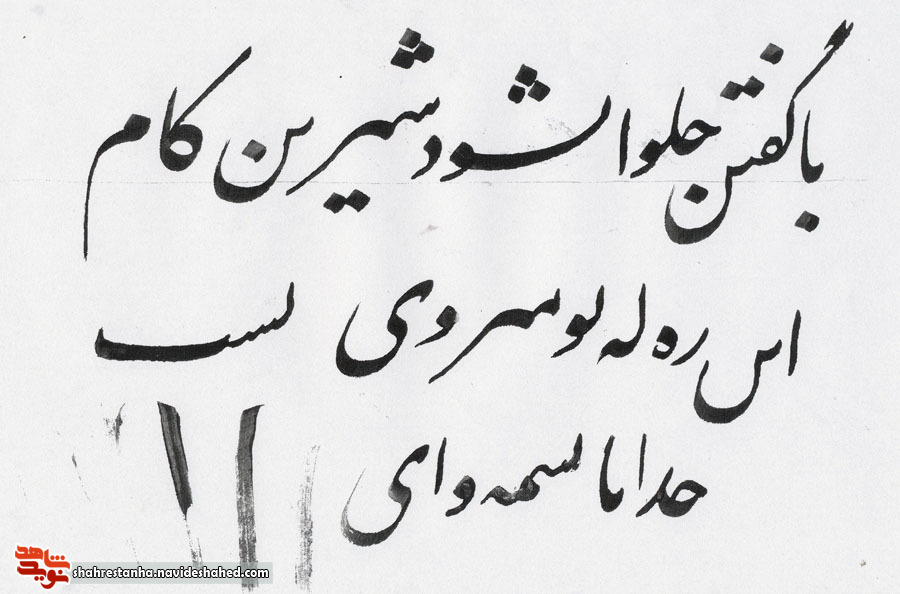 با گفتن حلوا نشود شیرین کام
این ره که تو میروی
خدایا
نوید شاهد
shahrestanha.navideshahed.com